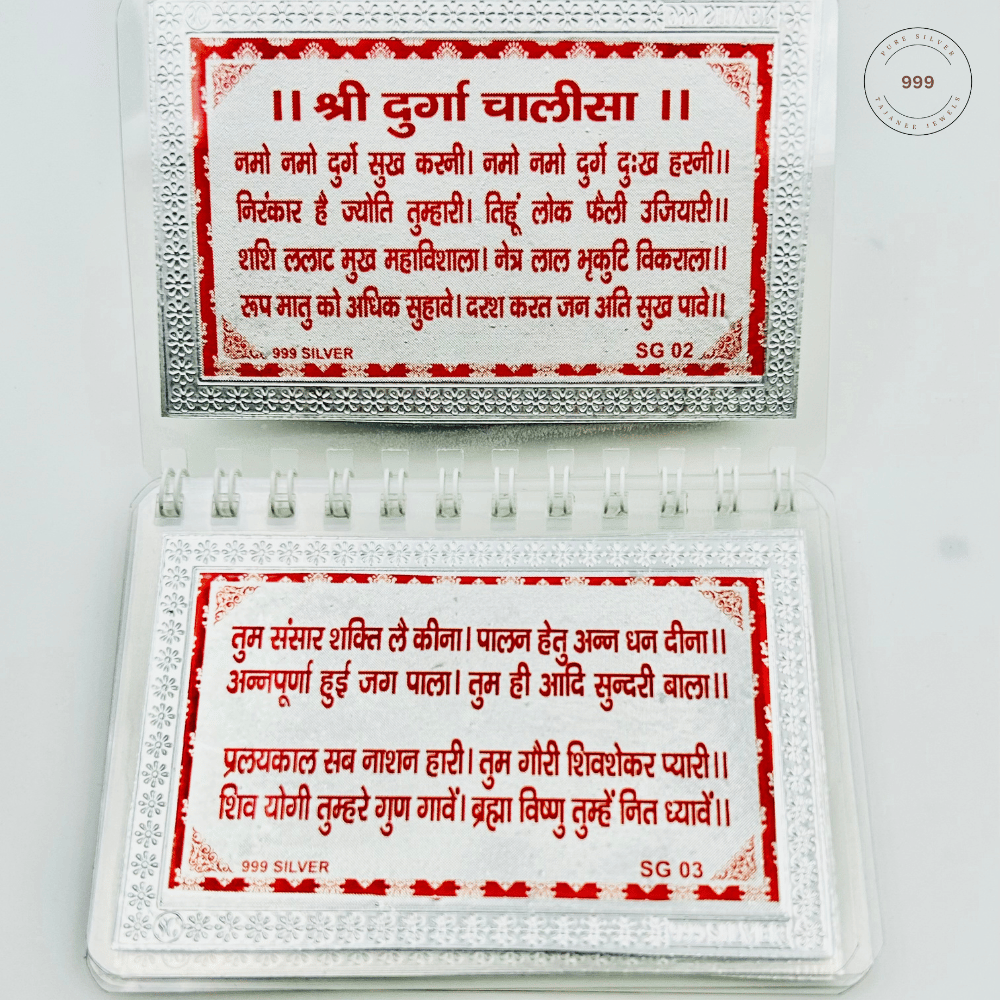 PURE SILVER
999
TAJANEE JEWELS
।। श्री दुर्गा चालीसा ।।
नमो नमो दुर्गे सुख करनी। नमो नमो दुर्गे दुःख हरनी।।
निरंकार है ज्योति तुम्हारी। तिहूं लोक फैली उजियारी।।
शशि ललाट मुख महाविशाला। नेत्र लाल भृकुटि विकराला।।
रूप मातु को अधिक सुहावे। दरश करत जन अति सुख पावे।।
999 SILVER
SG 02
तुम संसार शक्ति लै कीना। पालन हेतु अन्न धन दीना।।
अन्नपूर्णा हुई जग पाला। तुम ही आदि सुन्दरी बाला।।
प्रलयकाल सब नाशन हारी। तुम गौरी शिवशेकर प्यारी।।
शिव योगी तुम्हरे गुण गावें। ब्रह्मा विष्णु तुम्हें नित ध्यावें।।
999 SILVER
SG 03